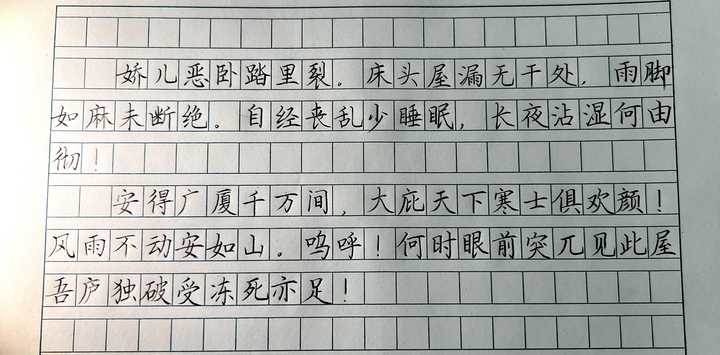 娇儿恶卧踏里裂。床头屋漏无干处，雨脚
如麻未断绝。自经丧乱少睡眠，长夜沾湿何由
彻！
安得广厦千万间，大庇天下寒士俱欢颜！
风雨不动安如山。呜呼！何时眼前突兀见此屋
吾庐独破受冻死亦足！